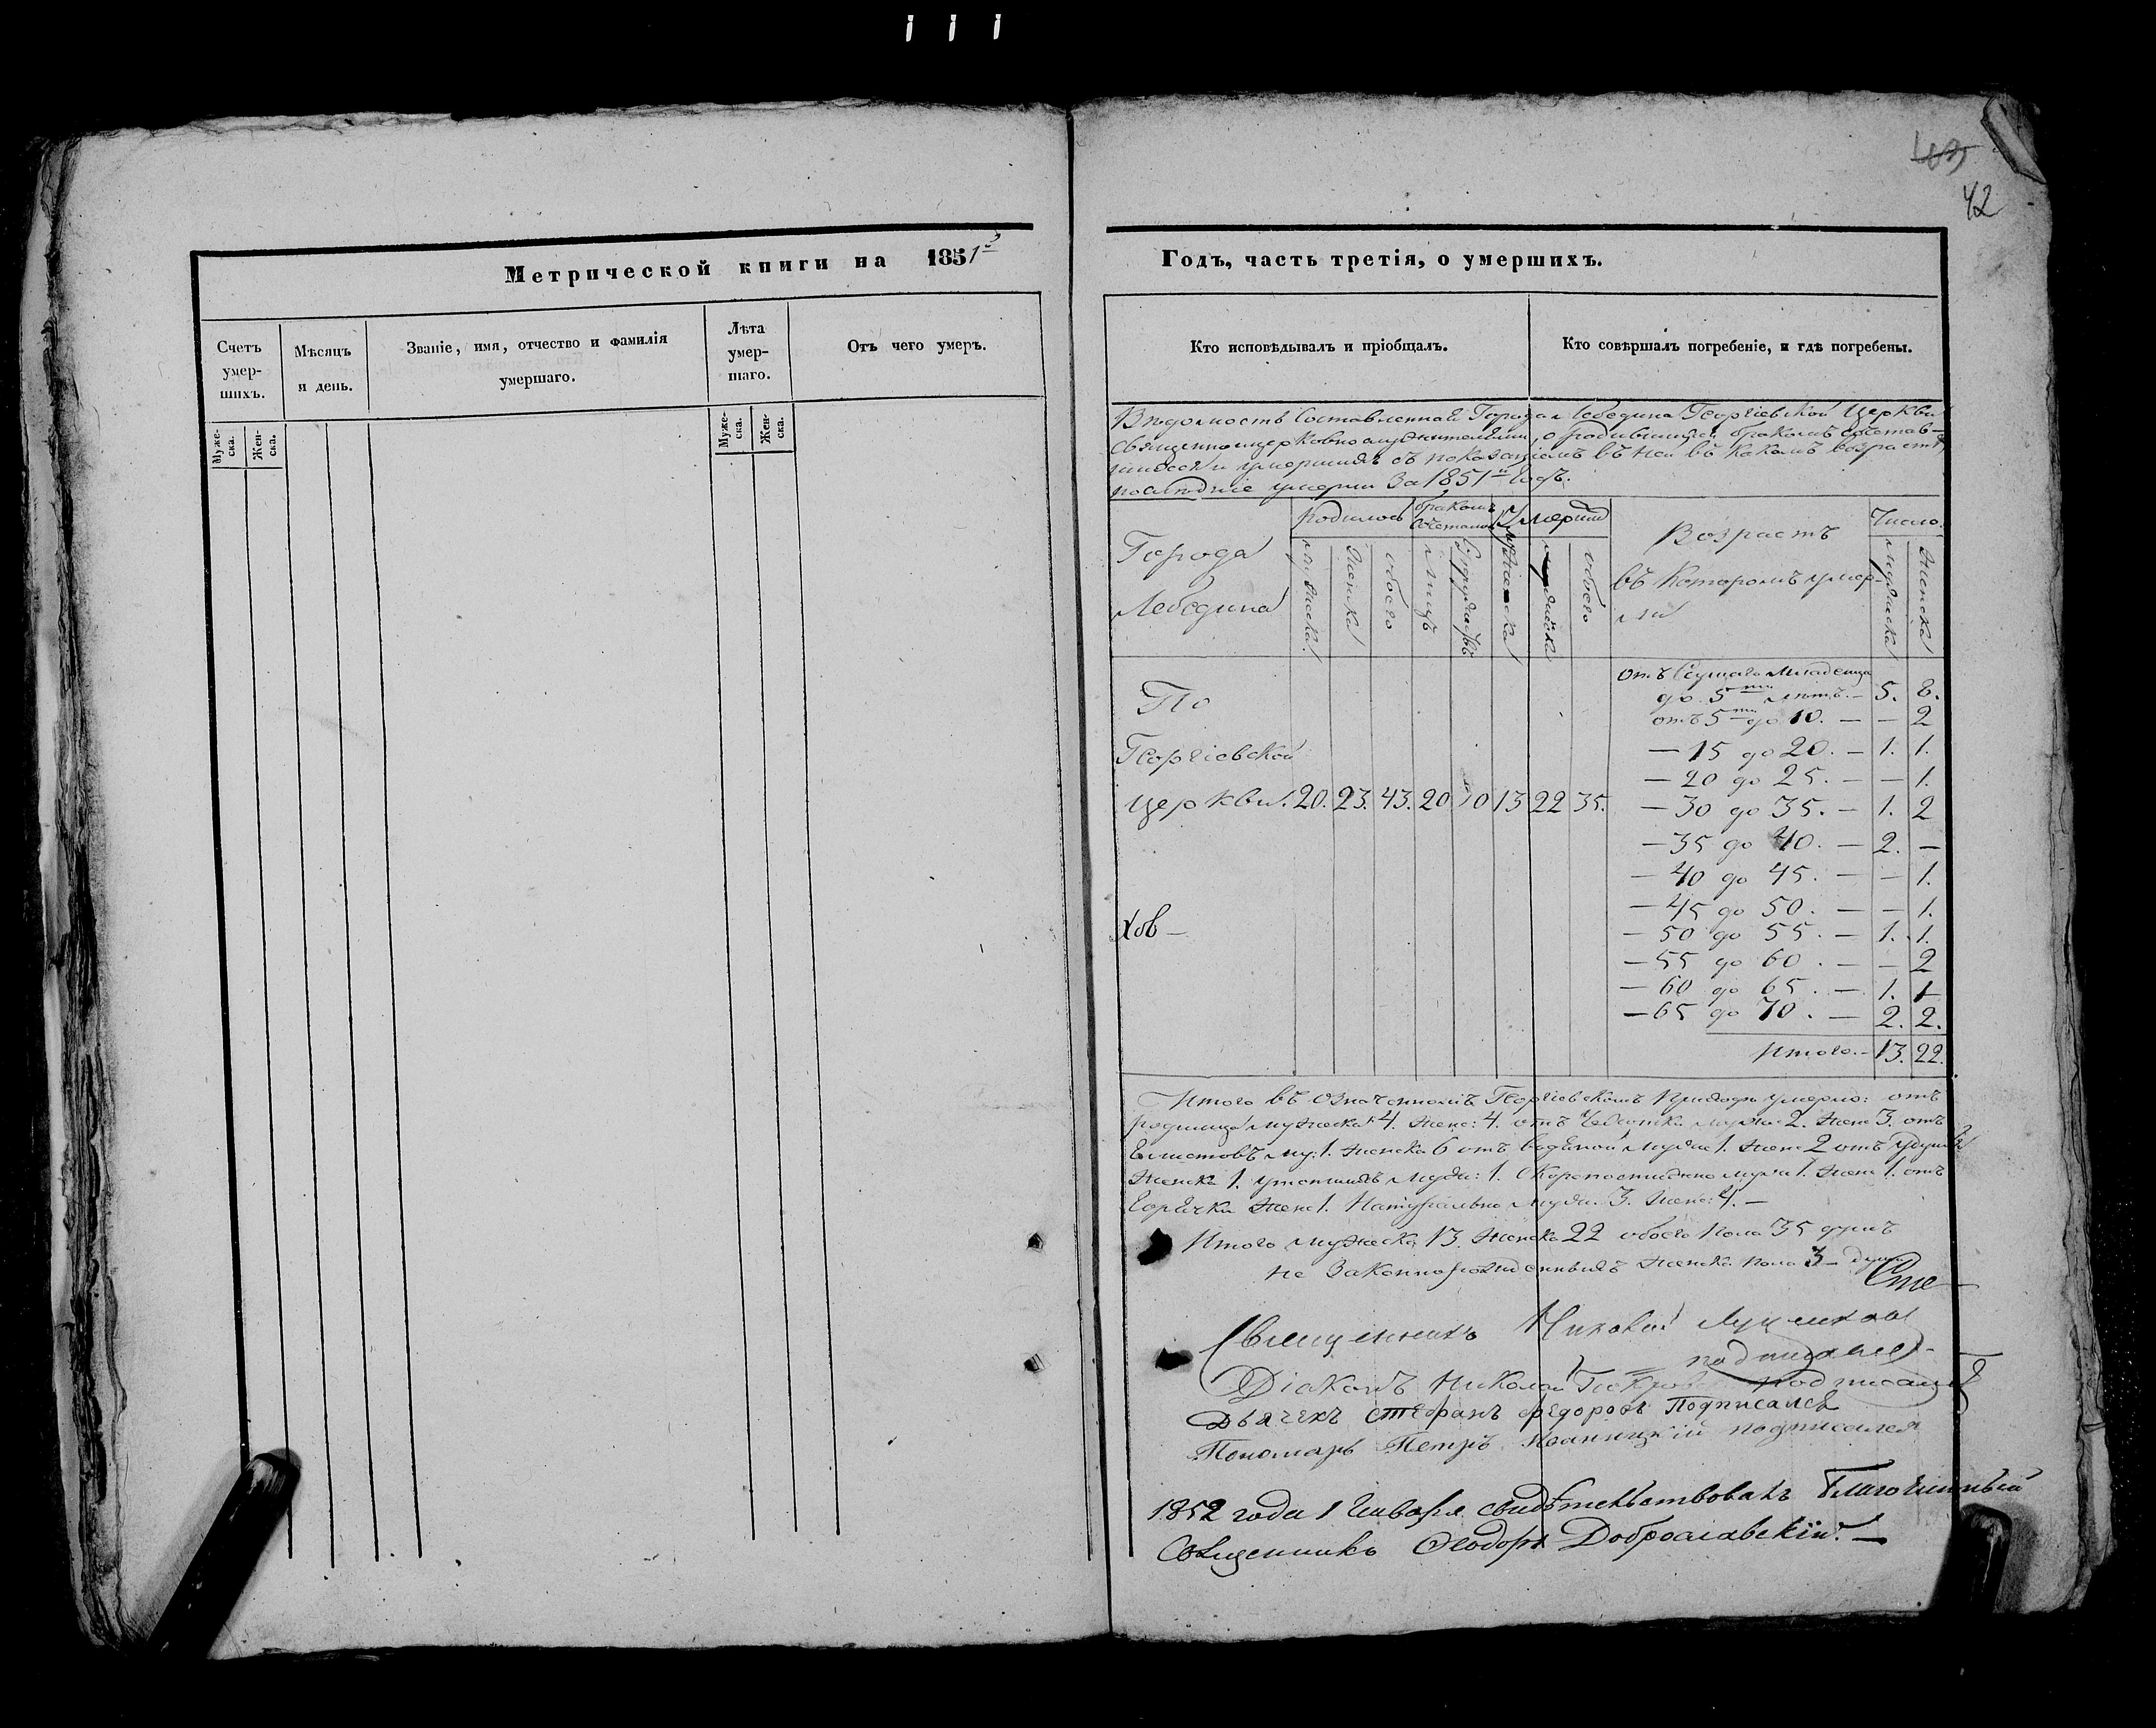 42
Метрической книги на 1851
Годъ, часть третія, о умершихъ.
Счетъ умер-шихъ.
Мѣсяцъ и день.
Званіе, имя, отчество и фамилія умершаго.
Лѣта умер-шаго.
Отъ чего умеръ.
Муже-ска.
Жен-ска.
Муже-ска.
Жен-ска.
Кто исповѣдывалъ и пріобщалъ.
Кто совѣршалъ погребеніе, и гдѣ погребены.
Вѣдомость составленная Города Лебедина Георгіевской Церкви
Священноцерковнослужителями, о родившихся, бракомъ сочетав-
шихся и умершихъ съ показаніемъ въ ней въ какомъ возрастѣ
послѣдніе умерли за 1851й годъ.
Города Лебедина
родилось
бракомъ
Умерши
Возрастъ въ которомъ умер-ли
Число
мужеска
женска
обоего
лицъ
Супружествъ
мужеска
обоего
мужеска
женска
По Георгіевской церкви. 20. 23. 43. 20 10 13 22 35.
отъ сущаго младенца
до 5ти лѣтъ. — 5. 8.
отъ 5ти до 10. — — 2
— 15 до 20. — 1. 1.
— 20 до 25. — — 1.
— 30 до 35. — 1. 2
— 35 до 40. — 2. —
— 40 до 45. — — 1.
— 45 до 50. — — 1.
— 50 до 55. — 1. 1.
— 55 до 60. — — 2
— 60 до 65. — 1. 1
— 65 до 70. — 2. 2.
Итого — 13. 22.
Итого въ означенномъ Георгіевскомъ приходѣ умерло: отъ
родимца мужеска 4. женс: 4. отъ чахотки муже: 2. жен: 3. отъ
глистовъ му: 1. женска 6 отъ водяной мужа 1. жен: 2 отъ удушья
женска 1. утопшихъ мужа: 1. скоропостижно мужа 1. жен: 1. отъ
горячки жен: 1. Натурально мужа. 3. женс: 4. —
Итого мужеска 13. женска 22 обоего пола 35 душъ
не законнорожденныхъ женска пола 3 — души
Священникъ Николай
подписался
Діаконъ Николай подписался
Дьячекъ Стефанъ Федоровъ Подписался
Пономарь Петръ подписался
1852 года 1 Генваря свидѣтельствовалъ Благочинный
Священникъ Феодоръ Доброславскій. —